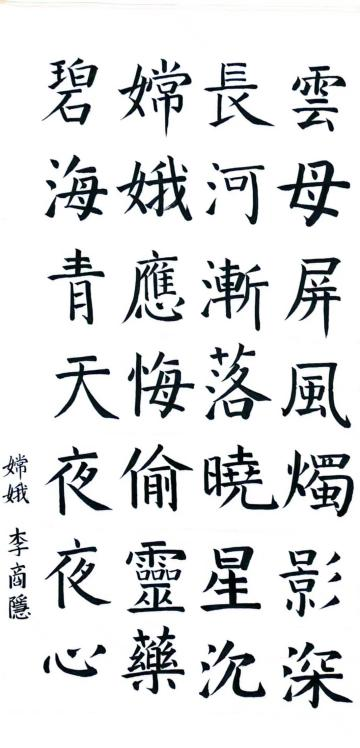 雲母屏風燭影深
長河漸落曉星沉
嫦娥應悔偷靈藥
碧海青天夜夜心
嫦娥 李商隱